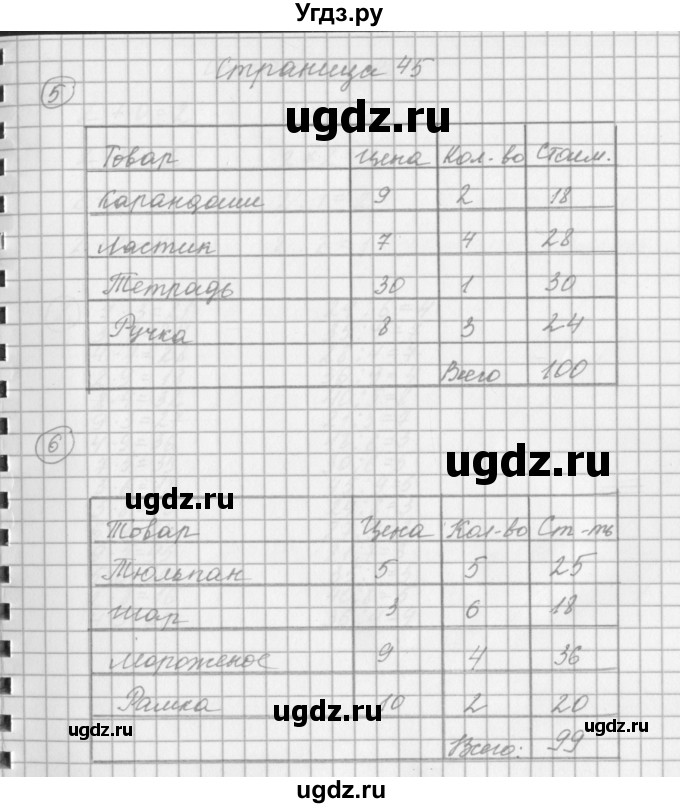 Угдз.ру
Страница 45
5
ugdz.ru
Товар Цена Кол-во Стоим.
Карандаши 9 2 18
Ластик 7 4 28
Тетрадь 30 1 30
Ручка 8 3 24
Всего 100
6
ugdz.ru
ugdz.ru
Товар Цена Кол-во Ст-ть
Тюльпан 5 5 25
Шар 3 6 18
Мороженое 9 4 36
Рамка 10 2 20
ugdz.ru
ugdz.ru
ugdz.ru
Всего: 99
ugdz.ru